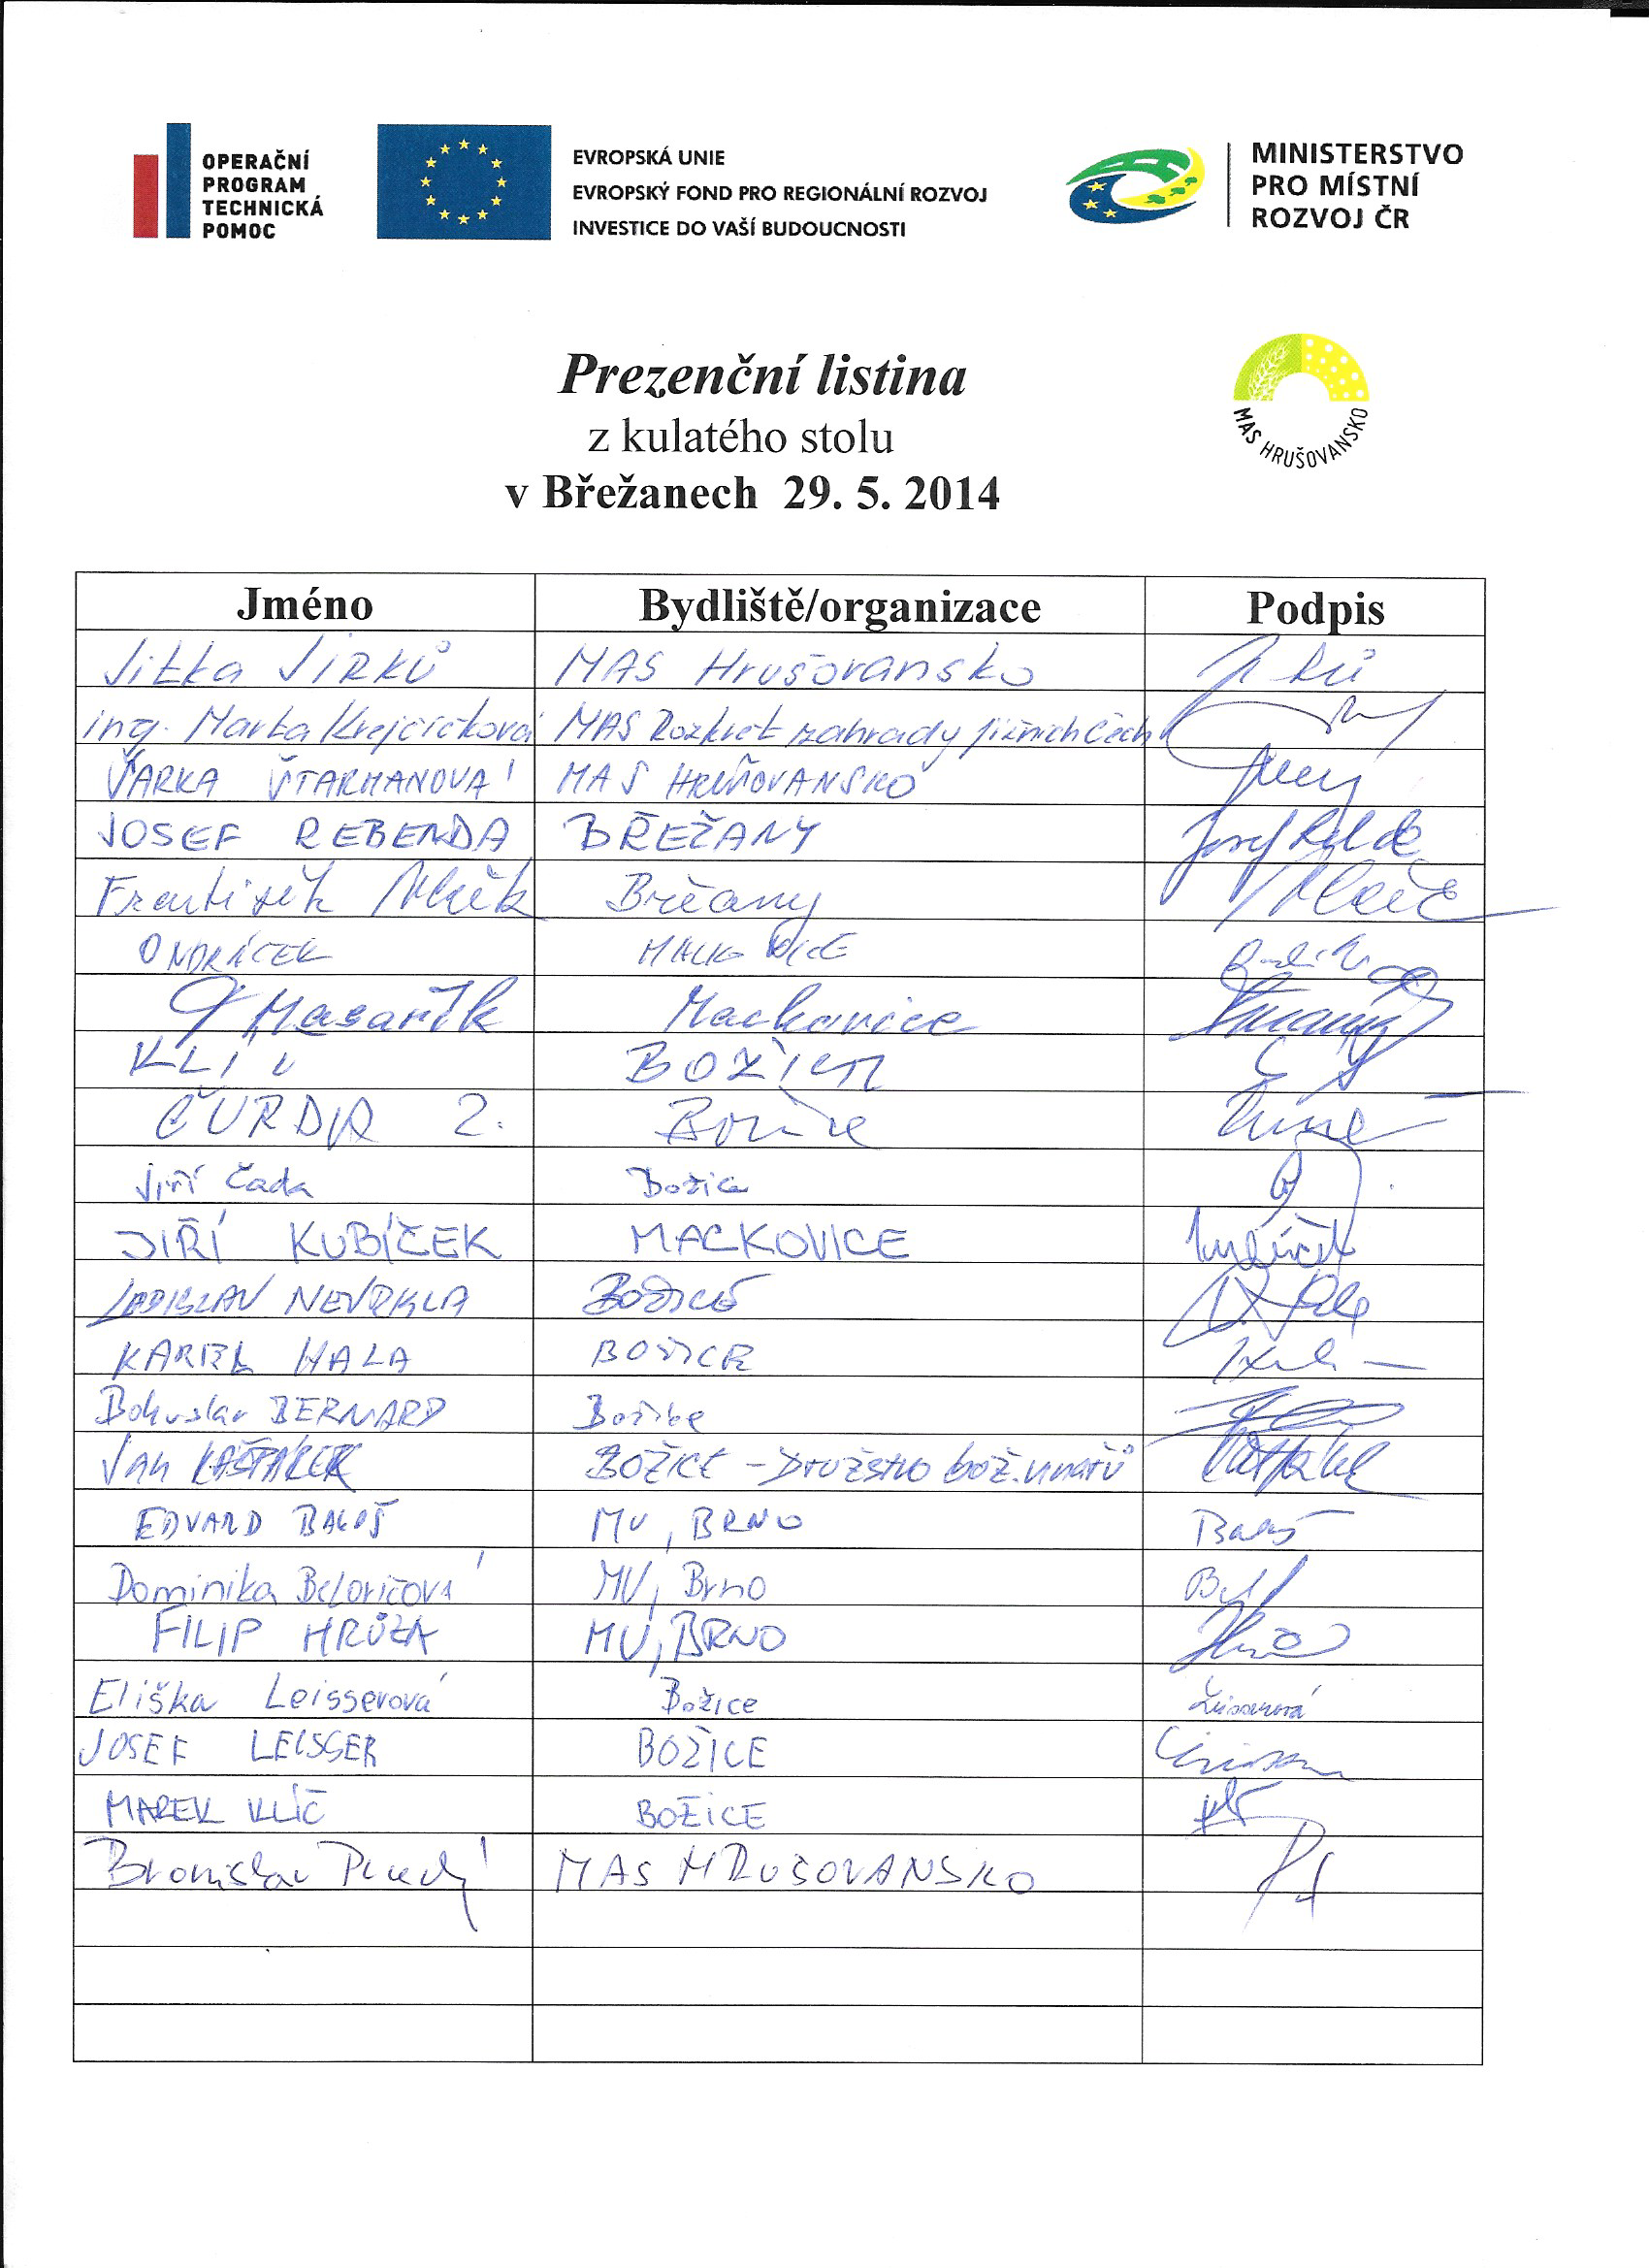 OPERAČNÍ
PROGRAM
TECHNICKÁ
POMOC
EVROPSKÁ UNIE
EVROPSKÝ FOND PRO REGIONÁLNÍ ROZVOJ
INVESTICE DO VAŠÍ BUDOUCNOSTI
MINISTERSTVO
PRO MÍSTNÍ
ROZVOJ ČR
MAS HRUŠOVANSKO
Prezenční listina
z kulatého stolu
v Břežanech 29. 5. 2014
Jméno Bydliště/organizace Podpis
Jitka JIRKŮ MAS Hrušovansko
ing. Marta Krejčíčková MAS Rozkvět zahrady jižních Čech
ŠÁRKA ŠTARMANOVÁ MAS HRUŠOVANSKO
JOSEF REBENDA BŘEŽANY
František Břežany
ONDRÁČEK
Masařík Mackovice
BOŽICE
ČURDA Božice
Jiří Čada Božice
JIŘÍ KUBÍČEK MACKOVICE
LADISLAV NEVRKLA BOŽICE
KAREL HALA BOŽICE
Bohuslav BERNARD Božice
JAN KAŠPÁREK BOŽICE - Družstvo bož. vinařů
EDVARD BALÁŠ MU, BRNO
Dominika MU, Brno
FILIP HRŮZA MU, BRNO
Eliška Leisserová Božice Leisserová
JOSEF LEISSER BOŽICE
MAREK KLÍČ BOŽICE
Bronislav MAS HRUŠOVANSKO